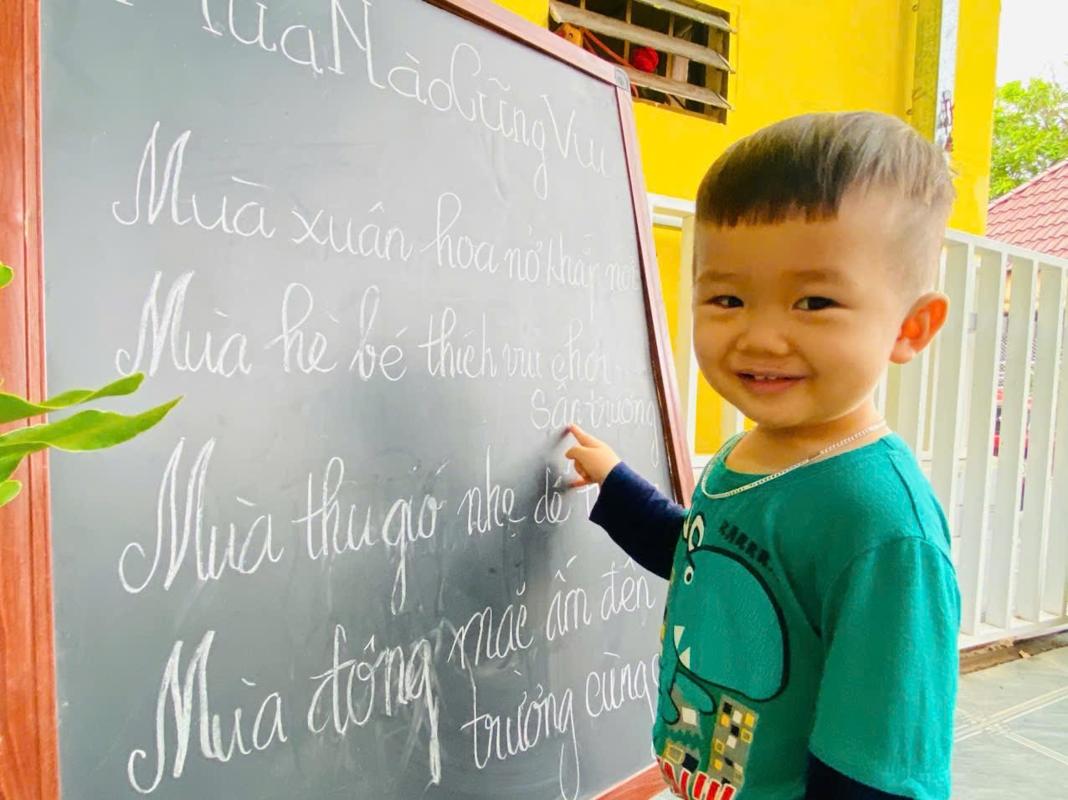 Mùa Nào Cũng Vui
Mùa xuân hoa nở khắp nơi
Mùa hè bé thích vui chơi
Sân trường
Mùa thu gió nhẹ dễ
Mùa đông mặc ấm đến
trường cùng
RARRR..